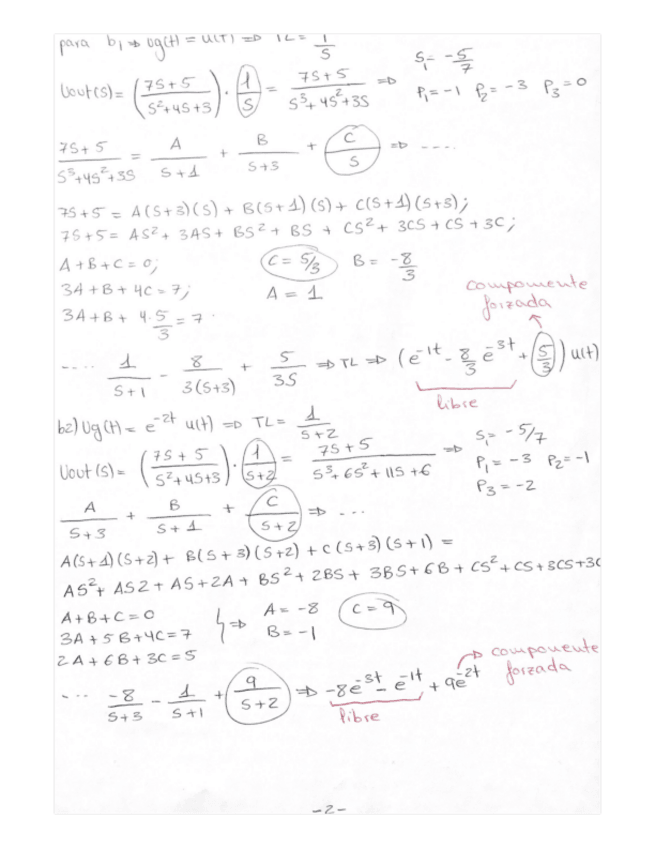 para b1 ⇒ Ug(t) = u(t) ⇒ TL = 1/S
Uout(s) = ((7S+5)/(S²+4S+3)) · (1/S) = (7S+5)/(S³+4S²+3S) ⇒ S₁ = -5/7
P₁=-1 P₂=-3 P₃=0
(7S+5)/(S³+4S²+3S) = A/(S+1) + B/(S+3) + C/S ⇒ ----
7S+5 = A(S+3)(S) + B(S+1)(S) + C(S+1)(S+3);
7S+5 = AS² + 3AS + BS² + BS + CS² + 3CS + CS + 3C;
A+B+C=0; C=5/3 B=-8/3
3A+B+4C=7; A=1
3A+B+4·5/3=7·
componente
forzada
---- 1/(S+1) - 8/(3(S+3)) + 5/3S ⇒ TL ⇒ (e^-1t - 8/3 e^-3t + 5/3) u(t)
libre
b2) Ug(t) = e^-2t u(t) ⇒ TL = 1/(S+2)
Uout(s) = ((7S+5)/(S²+4S+3)) · (1/(S+2)) = (7S+5)/(S³+6S²+11S+6) ⇒ S₁=-5/7
P₁=-3 P₂=-1
P₃=-2
A/(S+3) + B/(S+1) + C/(S+2) ⇒ ...
A(S+1)(S+2) + B(S+3)(S+2) + C(S+3)(S+1) =
AS² + AS2 + AS + 2A + BS² + 2BS + 3BS + 6B + CS² + CS + 3CS + 3C
A+B+C=0 A=-8 C=9
3A+5B+4C=7 ⇒ B=-1
2A+6B+3C=5
componente
forzada
.... -8/(S+3) - 1/(S+1) + 9/(S+2) ⇒ -8e^-3t - e^-1t + 9e^-2t
libre
-2-